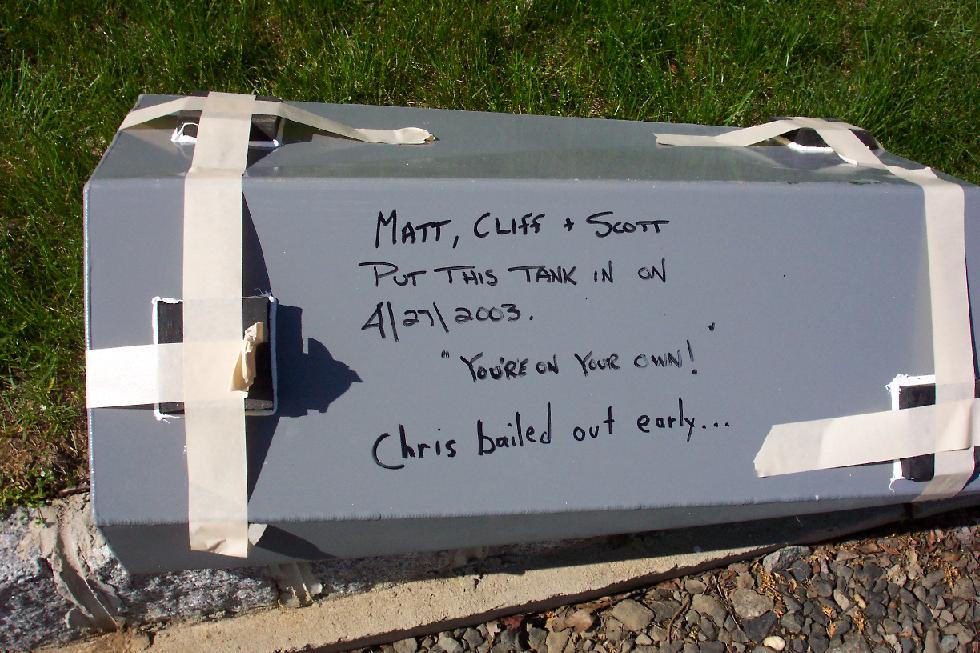 Matt, Cliff + Scott
Put this tank in on
4/27/2003.
"You're on your own!"
Chris bailed out early...